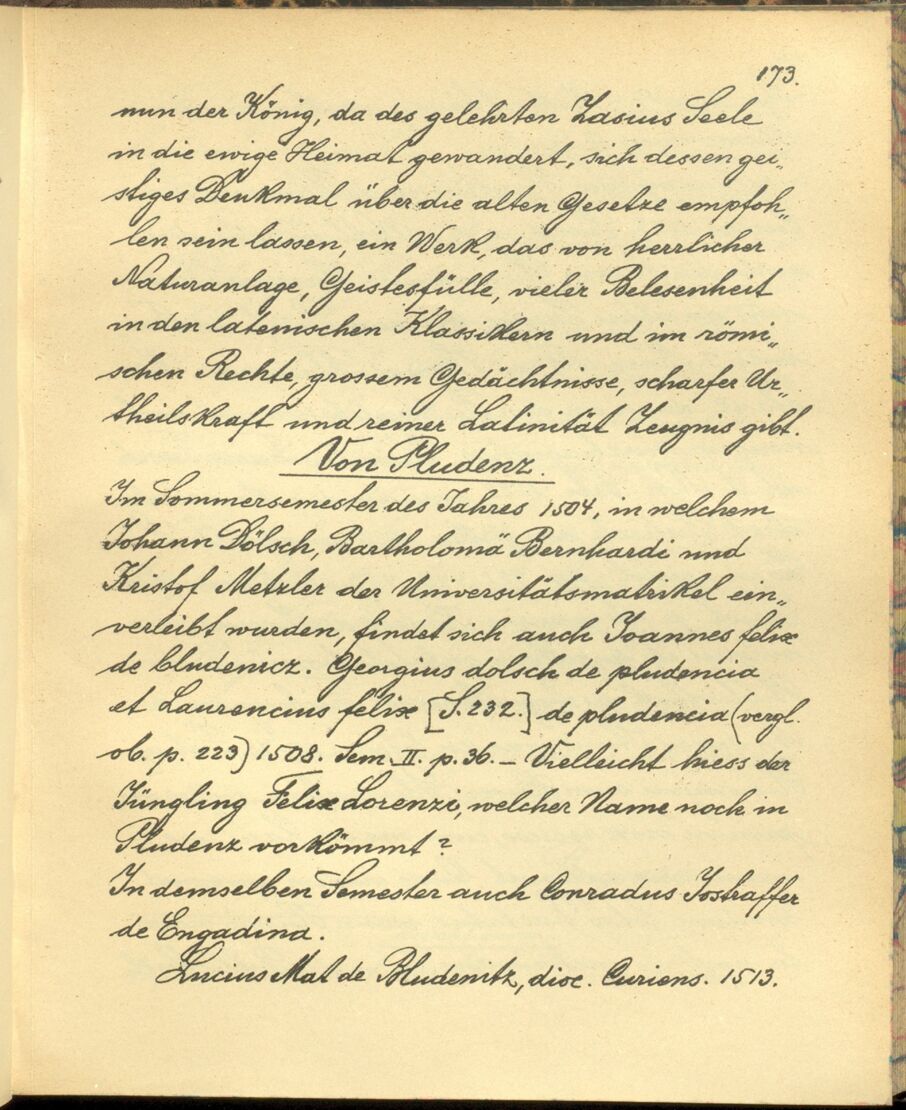 173.
nun der König, da des gelehrten Zasius Seele
in die ewige Heimat gewandert, sich dessen gei„
stiges Denkmal über die alten Gesetze empfoh„
len sein lassen, ein Werk, das von herrlicher
Naturanlage, Geistesfülle, vieler Belesenheit
in den lateinischen Klassikern und im römi„
schen Rechte, grossem Gedächtnisse, scharfer Ur„
theilskraft und reiner Latinität Zeugnis gibt.
Von Pludenz.
Im Sommersemester des Jahres 1504, in welchem
Johann Dölsch, Bartholomä Bernhardi und
Kristof Metzler der Universitätsmatrikel ein„
verleibt wurden, findet sich auch Joannes felix
de bludenicz. Georgius dolsch de pludencia
et Laurencius felix [S. 232.] de pludencia (vergl.
ob. p. 223) 1508. Sem. II. p. 36. – Vielleicht hiess der
Jüngling Felix Lorenzi, welcher Name noch in
Pludenz vorkömmt?
In demselben Semester auch Conradus Jostraffer
de Engadina.
Lucius Mat de Bludenitz, dioc. Curiens. 1513.